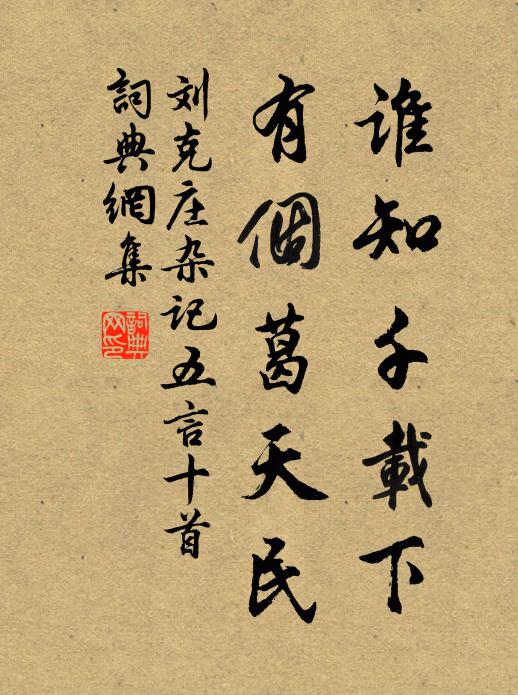 誰知千載下
有個葛天民
刘克庄杂记五言十首
詞典網集
詞典網印